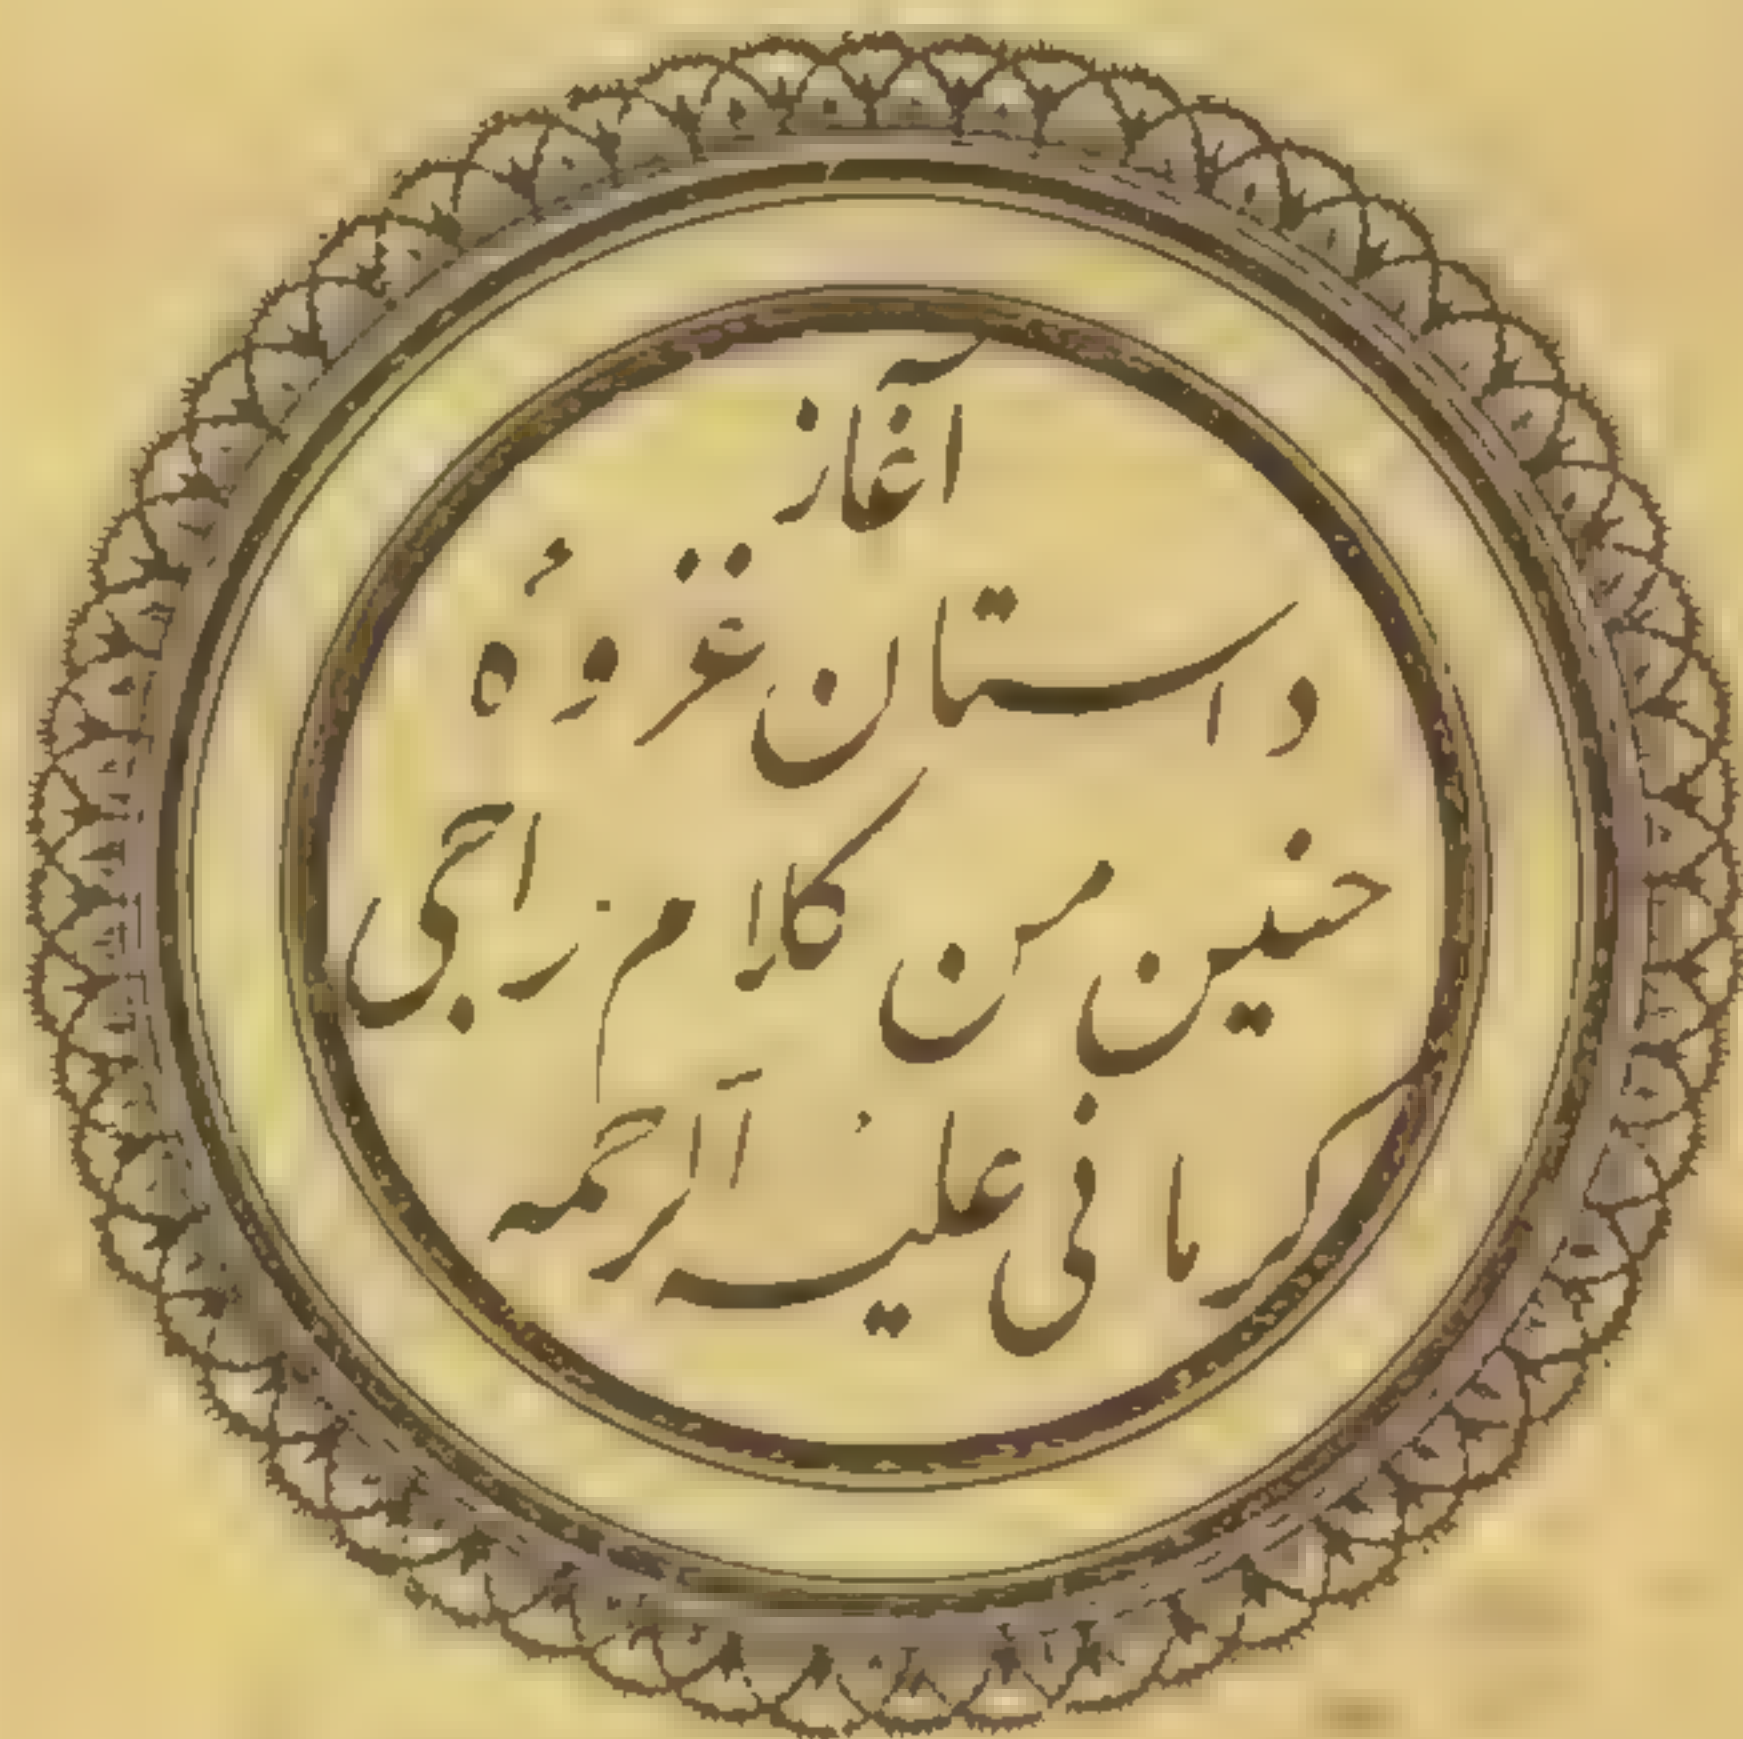 آغاز
داستان غزوهٔ
حنین من کلام راجی
کرمانی علیه الرحمه